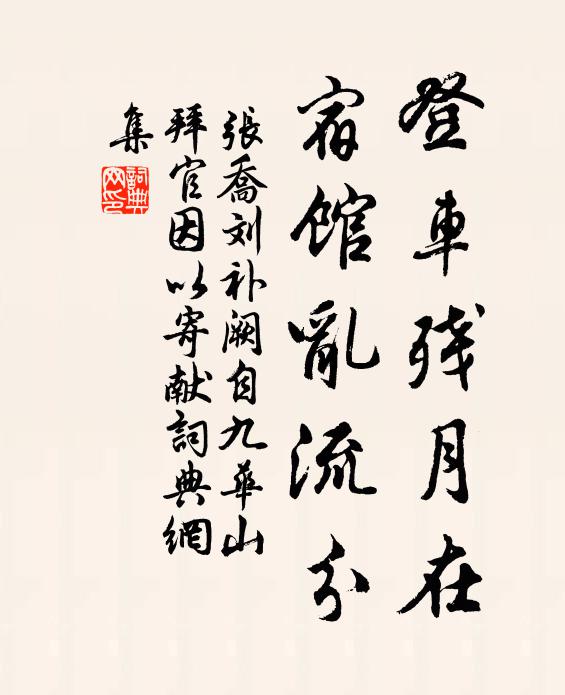 登車残月在
宿館亂流分
張喬刘补阙自九華山
拜官因以寄献詞典網
集
詞典
网印